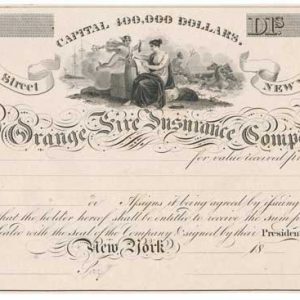 CAPITAL 400,000 DOLLARS.
DLS
Street
NEW
Orange Fire Insurance Comp
for value received pr
or Assigns it being agreed by issuing
that the holder hereof shall be entitled to receive the sum
with the seal of the Company & signed by their President
New York 18